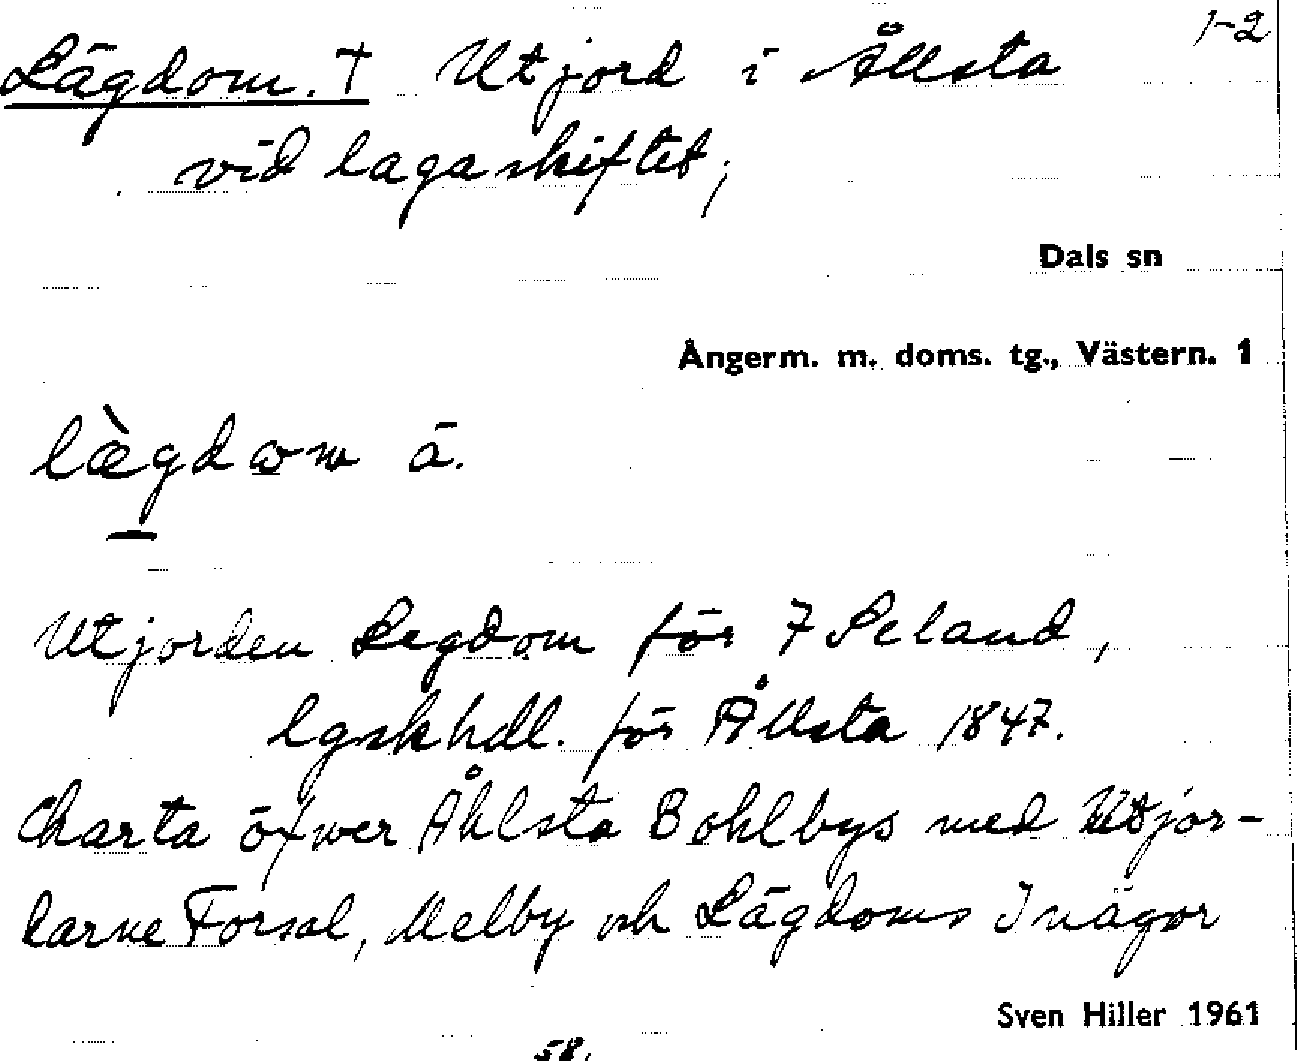 1-2
Lägdom. † Utjord i Ållsta
vid lagaskiftet;
Dals sn
Ångerm. m. doms. tg., Västern. 1
læ̀gdɷm ā.
Utjorden Legdom för 7 Seland,
lgskhdl. för Ållsta 1847.
Charta öfwer Åhlsta Bohlbys med Utjor-
darne Forsal, Melby och Lägdoms Inägor
Sven Hiller 1961
58.